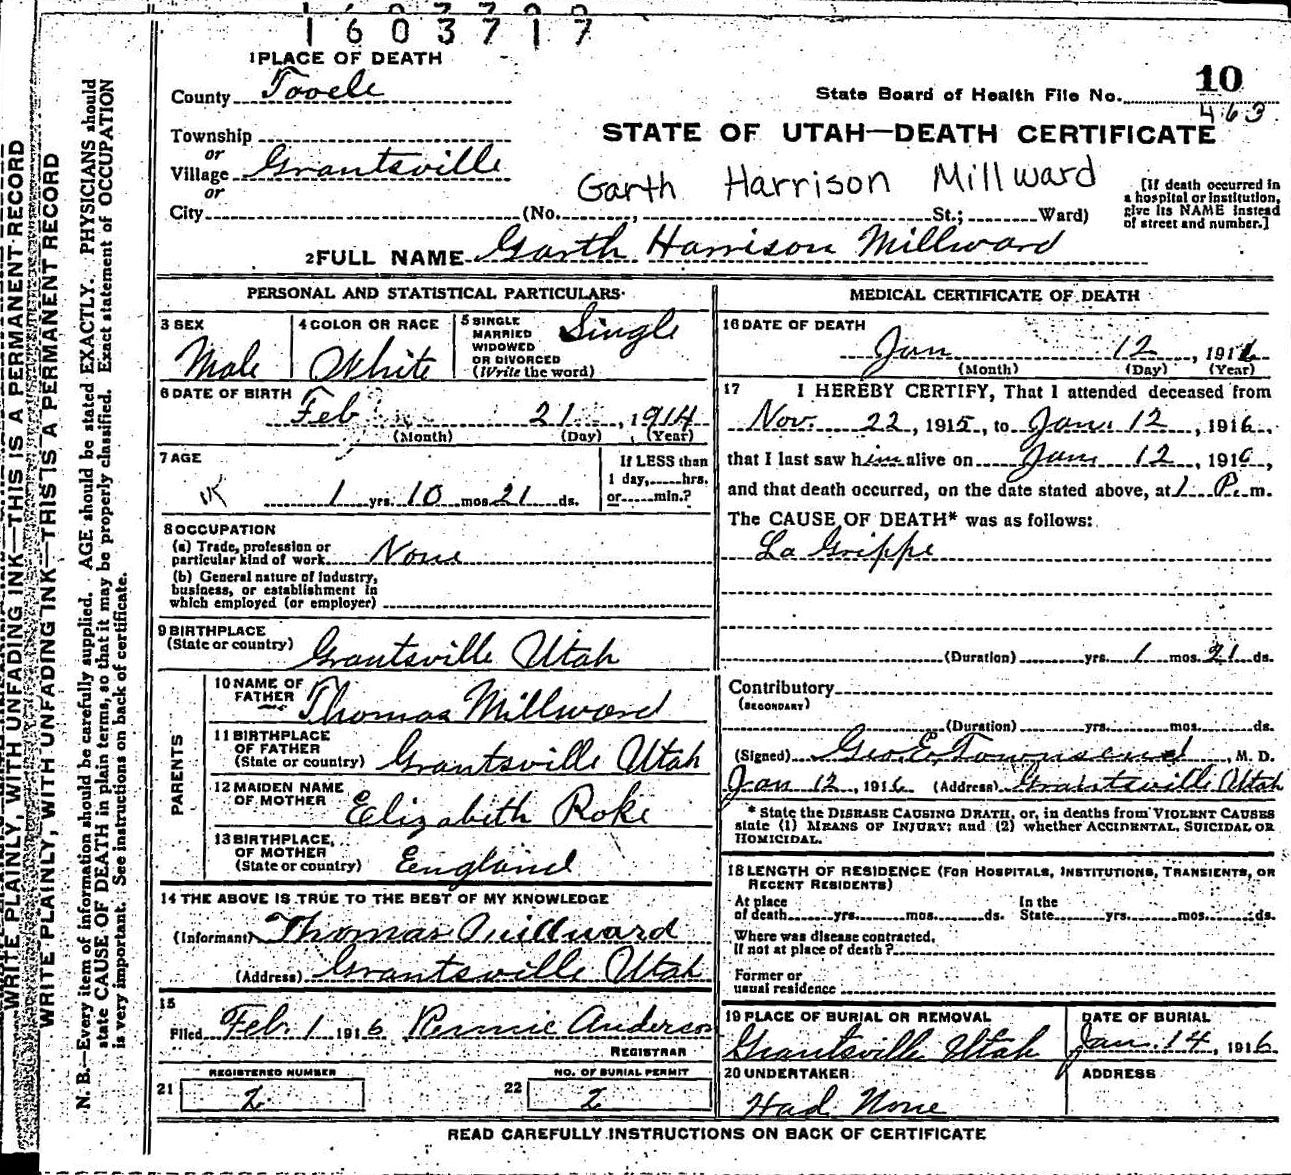 1603797
1 PLACE OF DEATH
County Tooele
State Board of Health File No. 10
463
Township
or
Village Grantsville
or
City (No. , St.; Ward)
STATE OF UTAH—DEATH CERTIFICATE
Garth Harrison Millward
[If death occurred in
a hospital or institution,
give its NAME instead
of street and number.]
2 FULL NAME Garth Harrison Millward
PERSONAL AND STATISTICAL PARTICULARS
3 SEX
Male
4 COLOR OR RACE
White
5 SINGLE
MARRIED
WIDOWED
OR DIVORCED
(Write the word)
Single
6 DATE OF BIRTH
Feb 21, 1914
(Month) (Day) (Year)
7 AGE
1 yrs. 10 mos. 21 ds.
If LESS than
1 day, hrs.
or min.?
8 OCCUPATION
(a) Trade, profession or
particular kind of work None
(b) General nature of industry,
business, or establishment in
which employed (or employer)
9 BIRTHPLACE
(State or country) Grantsville Utah
PARENTS
10 NAME OF
FATHER Thomas Millward
11 BIRTHPLACE
OF FATHER
(State or country) Grantsville Utah
12 MAIDEN NAME
OF MOTHER Elizabeth Roke
13 BIRTHPLACE
OF MOTHER
(State or country) England
14 THE ABOVE IS TRUE TO THE BEST OF MY KNOWLEDGE
(Informant) Thomas Millward
(Address) Grantsville Utah
15
Filed Feb. 1 1916 Anderson
REGISTRAR
REGISTERED NUMBER
21 2
NO. OF BURIAL PERMIT
22 2
MEDICAL CERTIFICATE OF DEATH
16 DATE OF DEATH
Jan 12, 1916
(Month) (Day) (Year)
17 I HEREBY CERTIFY, That I attended deceased from
Nov. 22, 1915, to Jan. 12, 1916,
that I last saw him alive on Jan. 12, 1916,
and that death occurred, on the date stated above, at 1 P. m.
The CAUSE OF DEATH* was as follows:
La Grippe
(Duration) yrs. 1 mos. 21 ds.
Contributory
(SECONDARY)
(Duration) yrs. mos. ds.
(Signed) Geo. E. Townsend, M. D.
Jan 12, 1916 (Address) Grantsville Utah
* State the DISEASE CAUSING DEATH, or, in deaths from VIOLENT CAUSES
state (1) MEANS OF INJURY; and (2) whether ACCIDENTAL, SUICIDAL OR
HOMICIDAL.
18 LENGTH OF RESIDENCE (FOR HOSPITALS, INSTITUTIONS, TRANSIENTS, OR
RECENT RESIDENTS)
At place
of death yrs. mos. ds.
In the
State yrs. mos. ds.
Where was disease contracted,
if not at place of death?
Former or
usual residence
19 PLACE OF BURIAL OR REMOVAL
Grantsville Utah
DATE OF BURIAL
Jan. 14, 1916
20 UNDERTAKER
Had None
ADDRESS
READ CAREFULLY INSTRUCTIONS ON BACK OF CERTIFICATE
WRITE PLAINLY, WITH UNFADING INK—THIS IS A PERMANENT RECORD
WRITE PLAINLY, WITH UNFADING INK—THIS IS A PERMANENT RECORD
N. B.—Every item of information should be carefully supplied. AGE should be stated EXACTLY. PHYSICIANS should
state CAUSE OF DEATH in plain terms, so that it may be properly classified. Exact statement of OCCUPATION
is very important. See instructions on back of certificate.